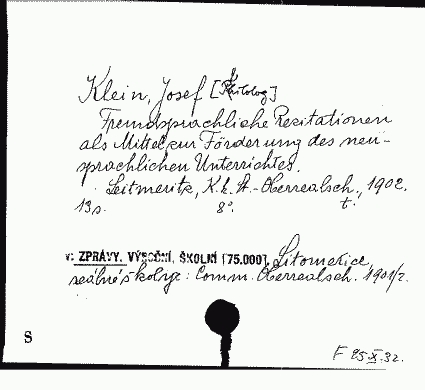 Klein, Josef [Philolog]
Fremdsprachliche Rezitationen
als Mittel zur Förderung des neu-
sprachlichen Unterrichtes.
Leitmeritz, K. k. St.-Oberrealsch., 1902.
13 s. 8°. t.
v: ZPRÁVY. VÝROČNÍ, ŠKOLNÍ [75.000], Litoměřice,
reálné školy: Comm. Oberrealsch. 1901/2.
S
F 25 X. 32.